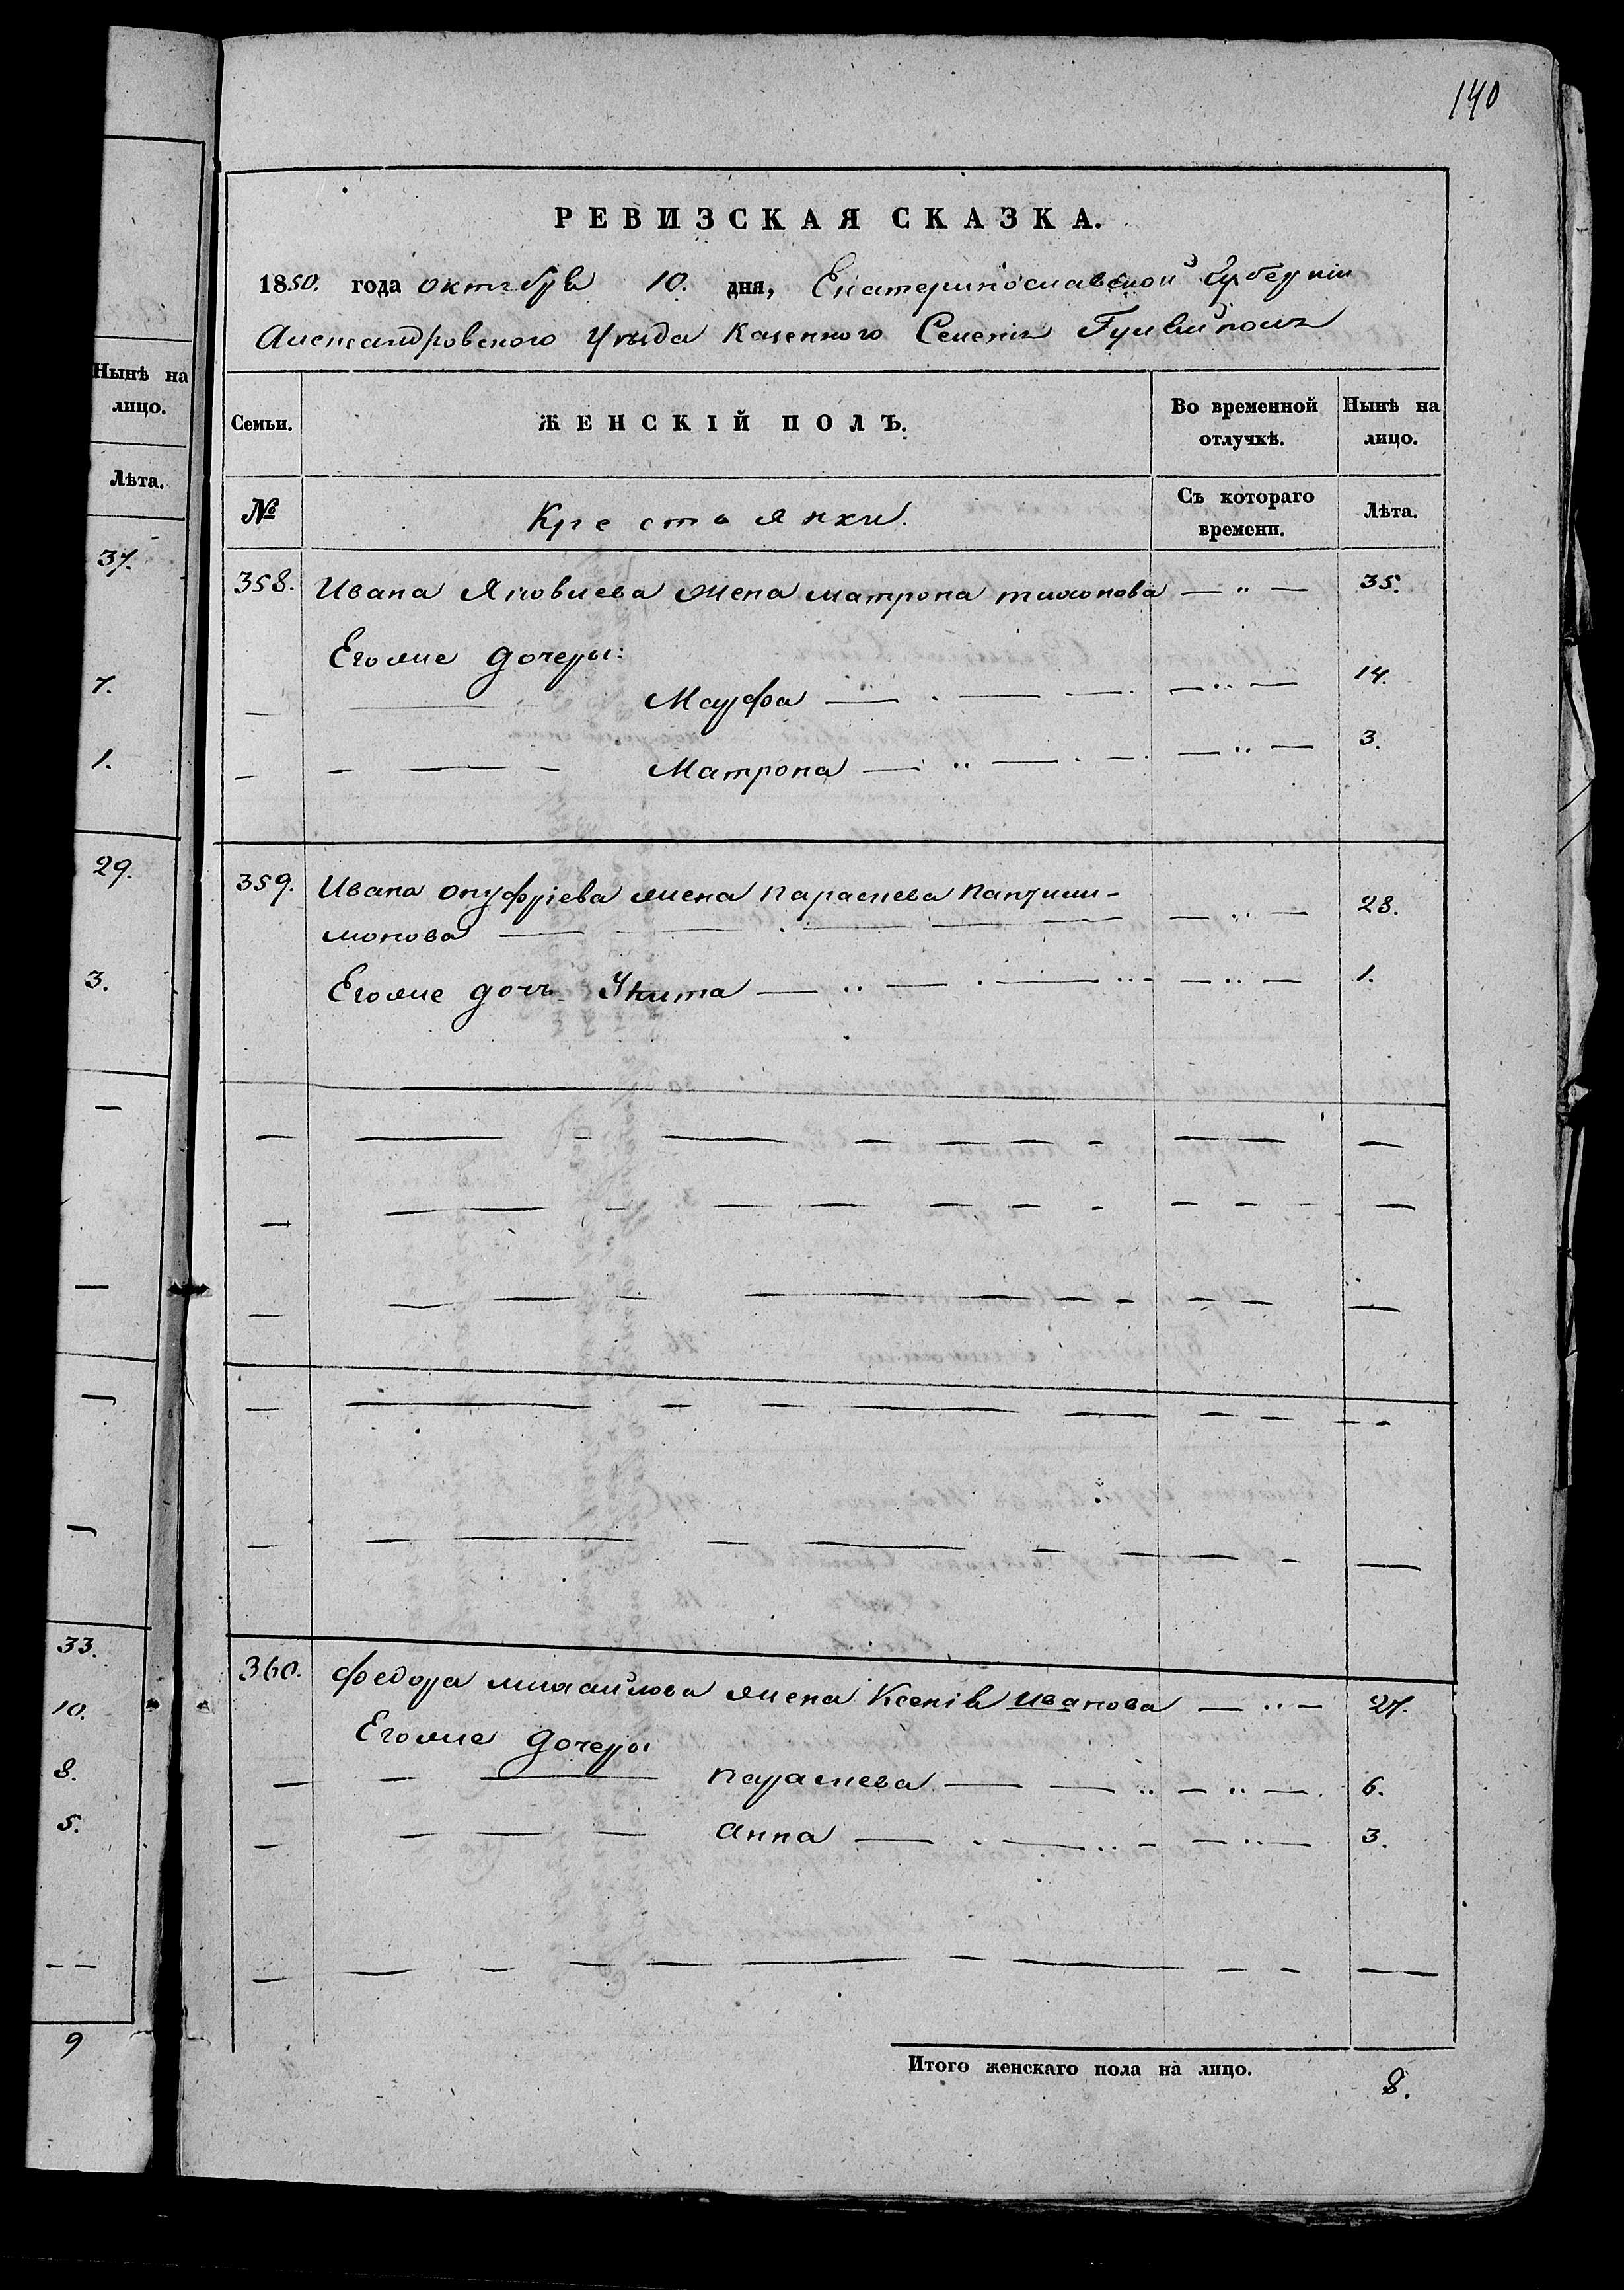 140
РЕВИЗСКАЯ СКАЗКА.
1850. года октября 10. дня, Екатеринославской Губернии
Александровского Уѣзда казенного Селения Гуляйполя
Нынѣ на
лицо.
Лѣта.
37.
7.
1.
29.
3.
33.
10.
8.
5.
9
Семьи. ЖЕНСКІЙ ПОЛЪ. Во временной отлучкѣ. Нынѣ на лицо.
№ Крестьянки. Съ котораго времени. Лѣта.
358. Ивана Яковлева жена матрона тихонова — " — 35.
Егоже дочери:
Марфа 14.
Матрона 3.
359. Ивана онуфріева жена параскева Пантили-
монова 28.
Егоже дочь 1.
360. Федора михайлова жена Ксенія Иванова 27.
Егоже дочери
параскева 6.
анна 3.
Итого женскаго пола на лицо. 8.